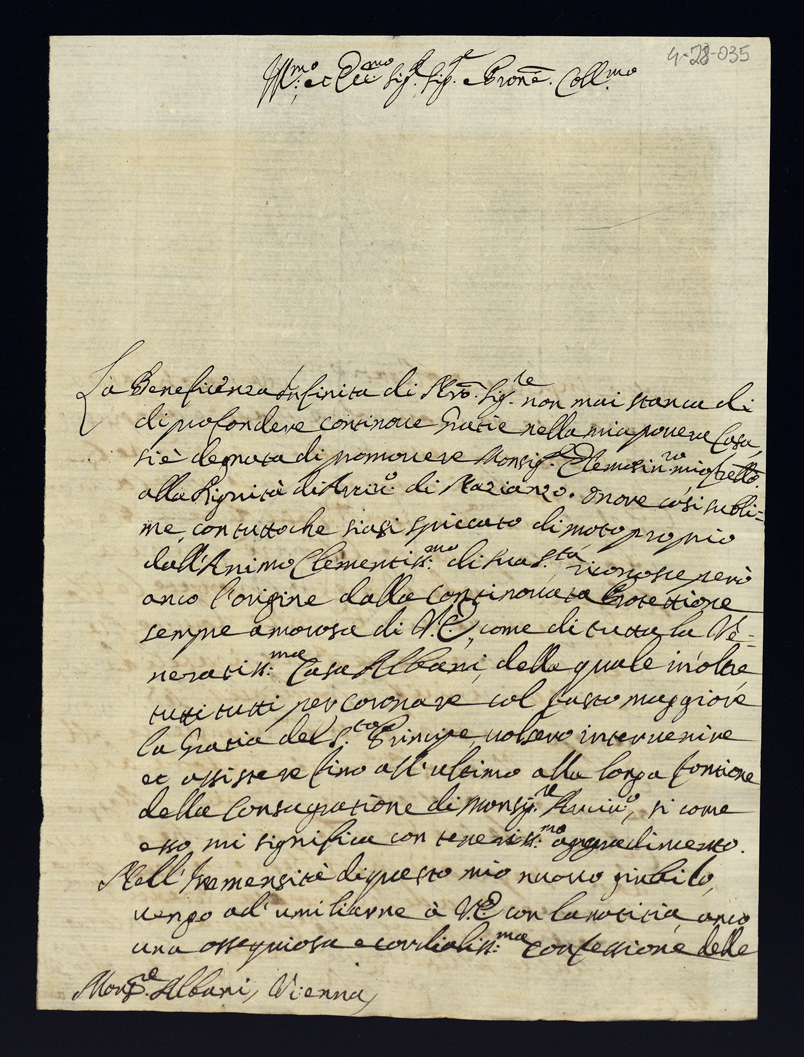 4-28-035
Ill:mo et Ecc:mo Sig.r Sig.r e Prone. Coll:mo
La Beneficenza infinita di Nro. Sig.re non mai stanca di
di profondere continoue Gratie nella mia povera Casa,
si è degnata di promovere Monsig.r Elemosin.ro mio frello.
alla Dignità di Arciv.o di Nazianzo. Onore così subli=
me, con tutto che siasi spiccato di moto proprio
dall'Animo Clementiss:mo di Sua S.ta riconosce però
anco l'origine dalla continovata Protettione
sempre amorosa di V.E, come di tutta la Ve=
neratiss:ma Casa Albani, della quale inoltre
tutti tutti per coronare col fasto maggiore
la Gratia del S.to Principe, volsero intervenire
et assistere fino all'ultimo alla longa fontione
della Consagratione di Monsig.re Arciv.o, si come
esso mi significa con teneriss:mo aggradimento.
Nell'Immensità di questo mio nuovo giubilo,
vengo ad'umiliarne à V.E con la notitia, anco
una ossequiosa e cordialiss:ma confessione delle
Mons.re Albani, Vienna,